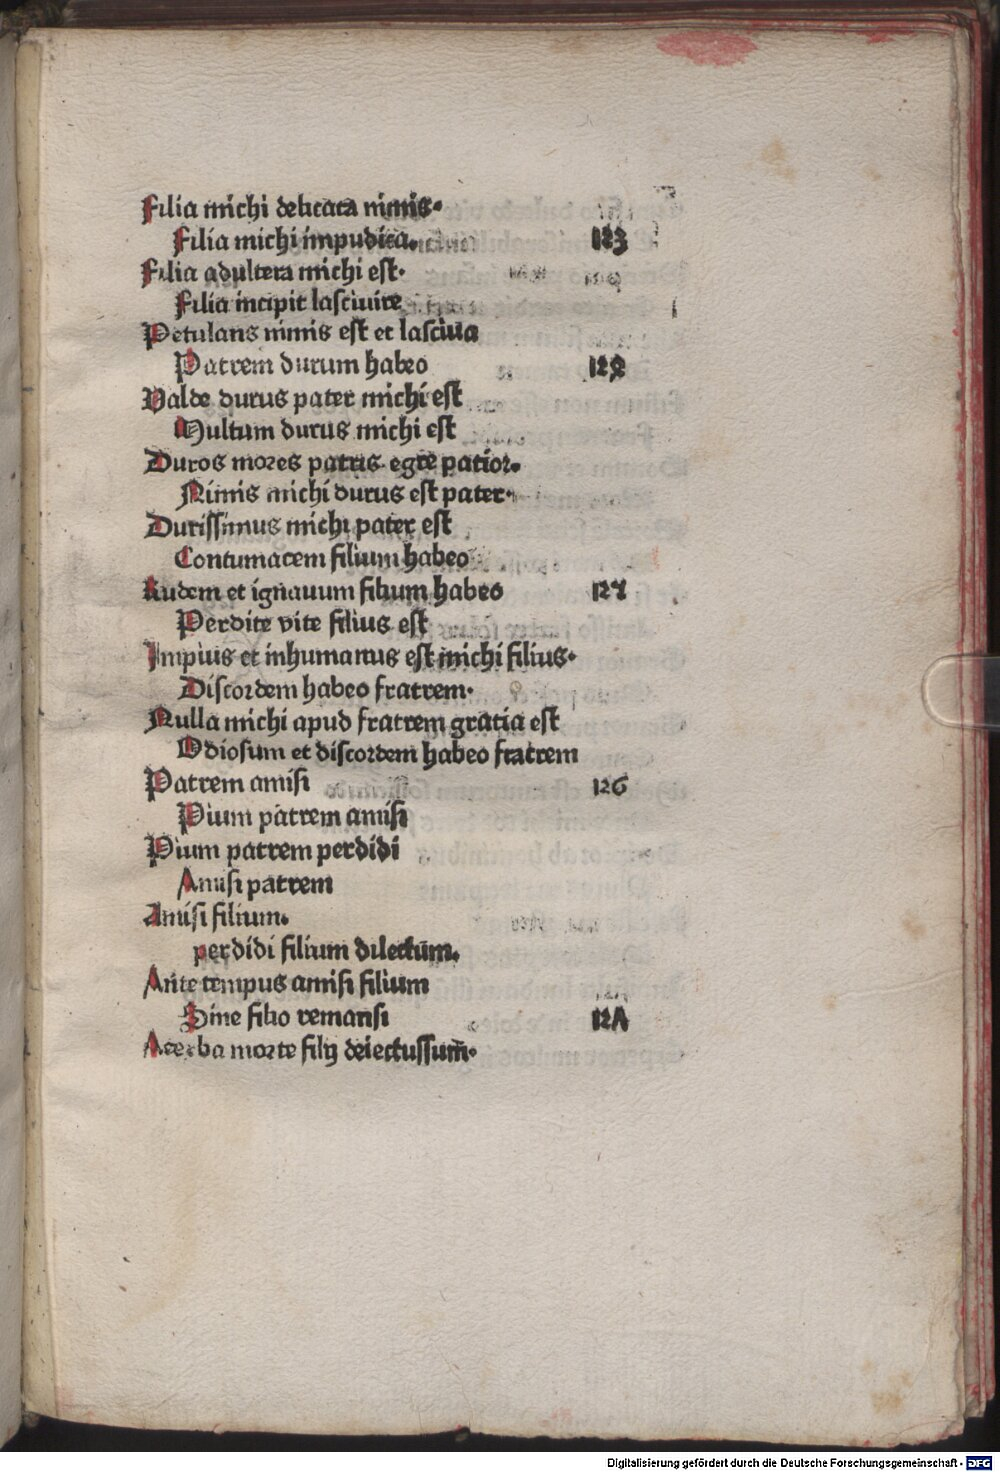 Filia michi delicata nimis.
Filia michi impudica. 123
Filia adultera michi est.
Filia incipit lasciuire
Petulans nimis est et lasciua
Patrem durum habeo 128
Valde durus pater michi est
Multum durus michi est
Duros mores patris egre patior.
Nimis michi durus est pater.
Durissimus michi pater est
Contumacem filium habeo
Rudem et ignauum filium habeo 127
Perdite vite filius est
Impius et inhumanus est michi filius.
Discordem habeo fratrem.
Nulla michi apud fratrem gratia est
Odiosum et discordem habeo fratrem
Patrem amisi 126
Pium patrem amisi
Pium patrem perdidi
Amisi patrem
Amisi filium.
perdidi filium dilectum.
Ante tempus amisi filium
Sine filio remansi 12Λ
Acerba morte filij deiectussum̄.
Digitalisierung gefördert durch die Deutsche Forschungsgemeinschaft - DFG